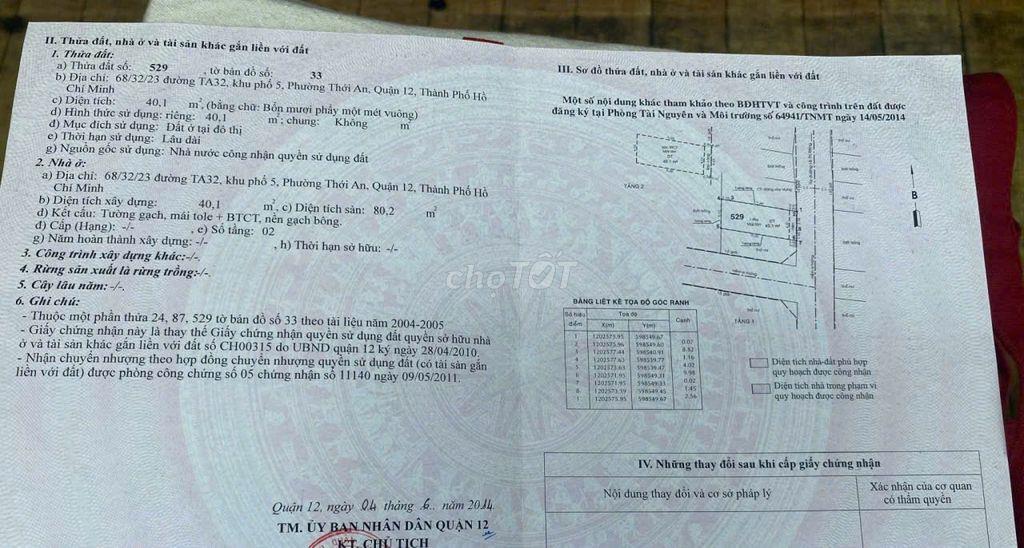 II. Thửa đất, nhà ở và tài sản khác gắn liền với đất
1. Thửa đất:
a) Thửa đất số: 529 , tờ bản đồ số: 33
b) Địa chỉ: 68/32/23 đường TA32, khu phố 5, Phường Thới An, Quận 12, Thành Phố Hồ
Chí Minh
c) Diện tích: 40,1 m², (bằng chữ: Bốn mươi phẩy một mét vuông)
d) Hình thức sử dụng: riêng: 40,1 m²; chung: Không m²
đ) Mục đích sử dụng: Đất ở tại đô thị
e) Thời hạn sử dụng: Lâu dài
g) Nguồn gốc sử dụng: Nhà nước công nhận quyền sử dụng đất
2. Nhà ở:
a) Địa chỉ: 68/32/23 đường TA32, khu phố 5, Phường Thới An, Quận 12, Thành Phố Hồ
Chí Minh
b) Diện tích xây dựng: 40,1 m², c) Diện tích sàn: 80,2 m²
d) Kết cấu: Tường gạch, mái tole + BTCT, nền gạch bông.
đ) Cấp (Hạng): -/- , e) Số tầng: 02
g) Năm hoàn thành xây dựng: -/- , h) Thời hạn sở hữu: -/-
3. Công trình xây dựng khác:-/-.
4. Rừng sản xuất là rừng trồng:-/-.
5. Cây lâu năm: -/-.
6. Ghi chú:
- Thuộc một phần thửa 24, 87, 529 tờ bản đồ số 33 theo tài liệu năm 2004-2005
- Giấy chứng nhận này là thay thế Giấy chứng nhận quyền sử dụng đất quyền sở hữu nhà
ở và tài sản khác gắn liền với đất số CH00315 do UBND quận 12 ký ngày 28/04/2010.
- Nhận chuyển nhượng theo hợp đồng chuyển nhượng quyền sử dụng đất (có tài sản gắn
liền với đất) được phòng công chứng số 05 chứng nhận số 11140 ngày 09/05/2011.
Quận 12, ngày 04 tháng 6 năm 2014.
TM. ỦY BAN NHÂN DÂN QUẬN 12
KT. CHỦ TỊCH
III. Sơ đồ thửa đất, nhà ở và tài sản khác gắn liền với đất
Một số nội dung khác tham khảo theo BĐHTVT và công trình trên đất được
đăng ký tại Phòng Tài Nguyên và Môi trường số 64941/TNMT ngày 14/05/2014
TẦNG 2
B
529
TẦNG 1
BẢNG LIỆT KÊ TỌA ĐỘ GÓC RANH
Số hiệu điểm Tọa độ Cạnh
X(m) Y(m)
1 1202575.95 598549.67
2 1202575.96 598549.60 0.07
3 1202577.44 598540.91 8.82
4 1202577.63 598539.77 1.16
5 1202573.63 598539.47 4.02
6 1202571.95 598549.31 9.98
7 1202571.95 598549.33 0.02
8 1202573.39 598549.45 1.45
1 1202575.95 598549.67 2.56
Diện tích nhà-đất phù hợp
quy hoạch được công nhận
Diện tích nhà trong phạm vi
quy hoạch được công nhận
IV. Những thay đổi sau khi cấp giấy chứng nhận
Nội dung thay đổi và cơ sở pháp lý
Xác nhận của cơ quan
có thẩm quyền
chợTỐT